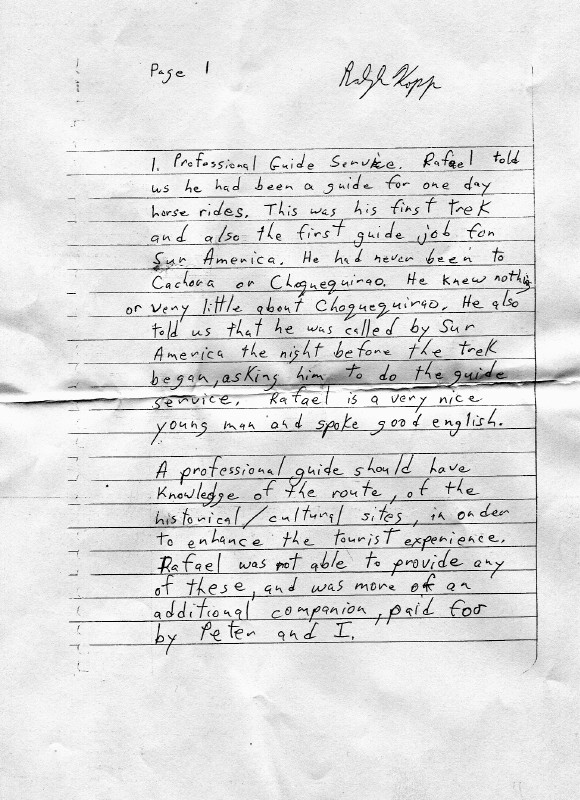 Page 1
Ralph Kopp
1. Professional Guide Service. Rafael told
us he had been a guide for one day
horse rides. This was his first trek
and also the first guide job for
Sur America. He had never been to
Cachora or Choquequirao. He knew nothing
or very little about Choquequirao. He also
told us that he was called by Sur
America the night before the trek
began, asking him to do the guide
service. Rafael is a very nice
young man and spoke good english.
A professional guide should have
knowledge of the route, of the
historical/cultural sites, in order
to enhance the tourist experience.
Rafael was not able to provide any
of these, and was more of an
additional companion, paid for
by Peter and I.